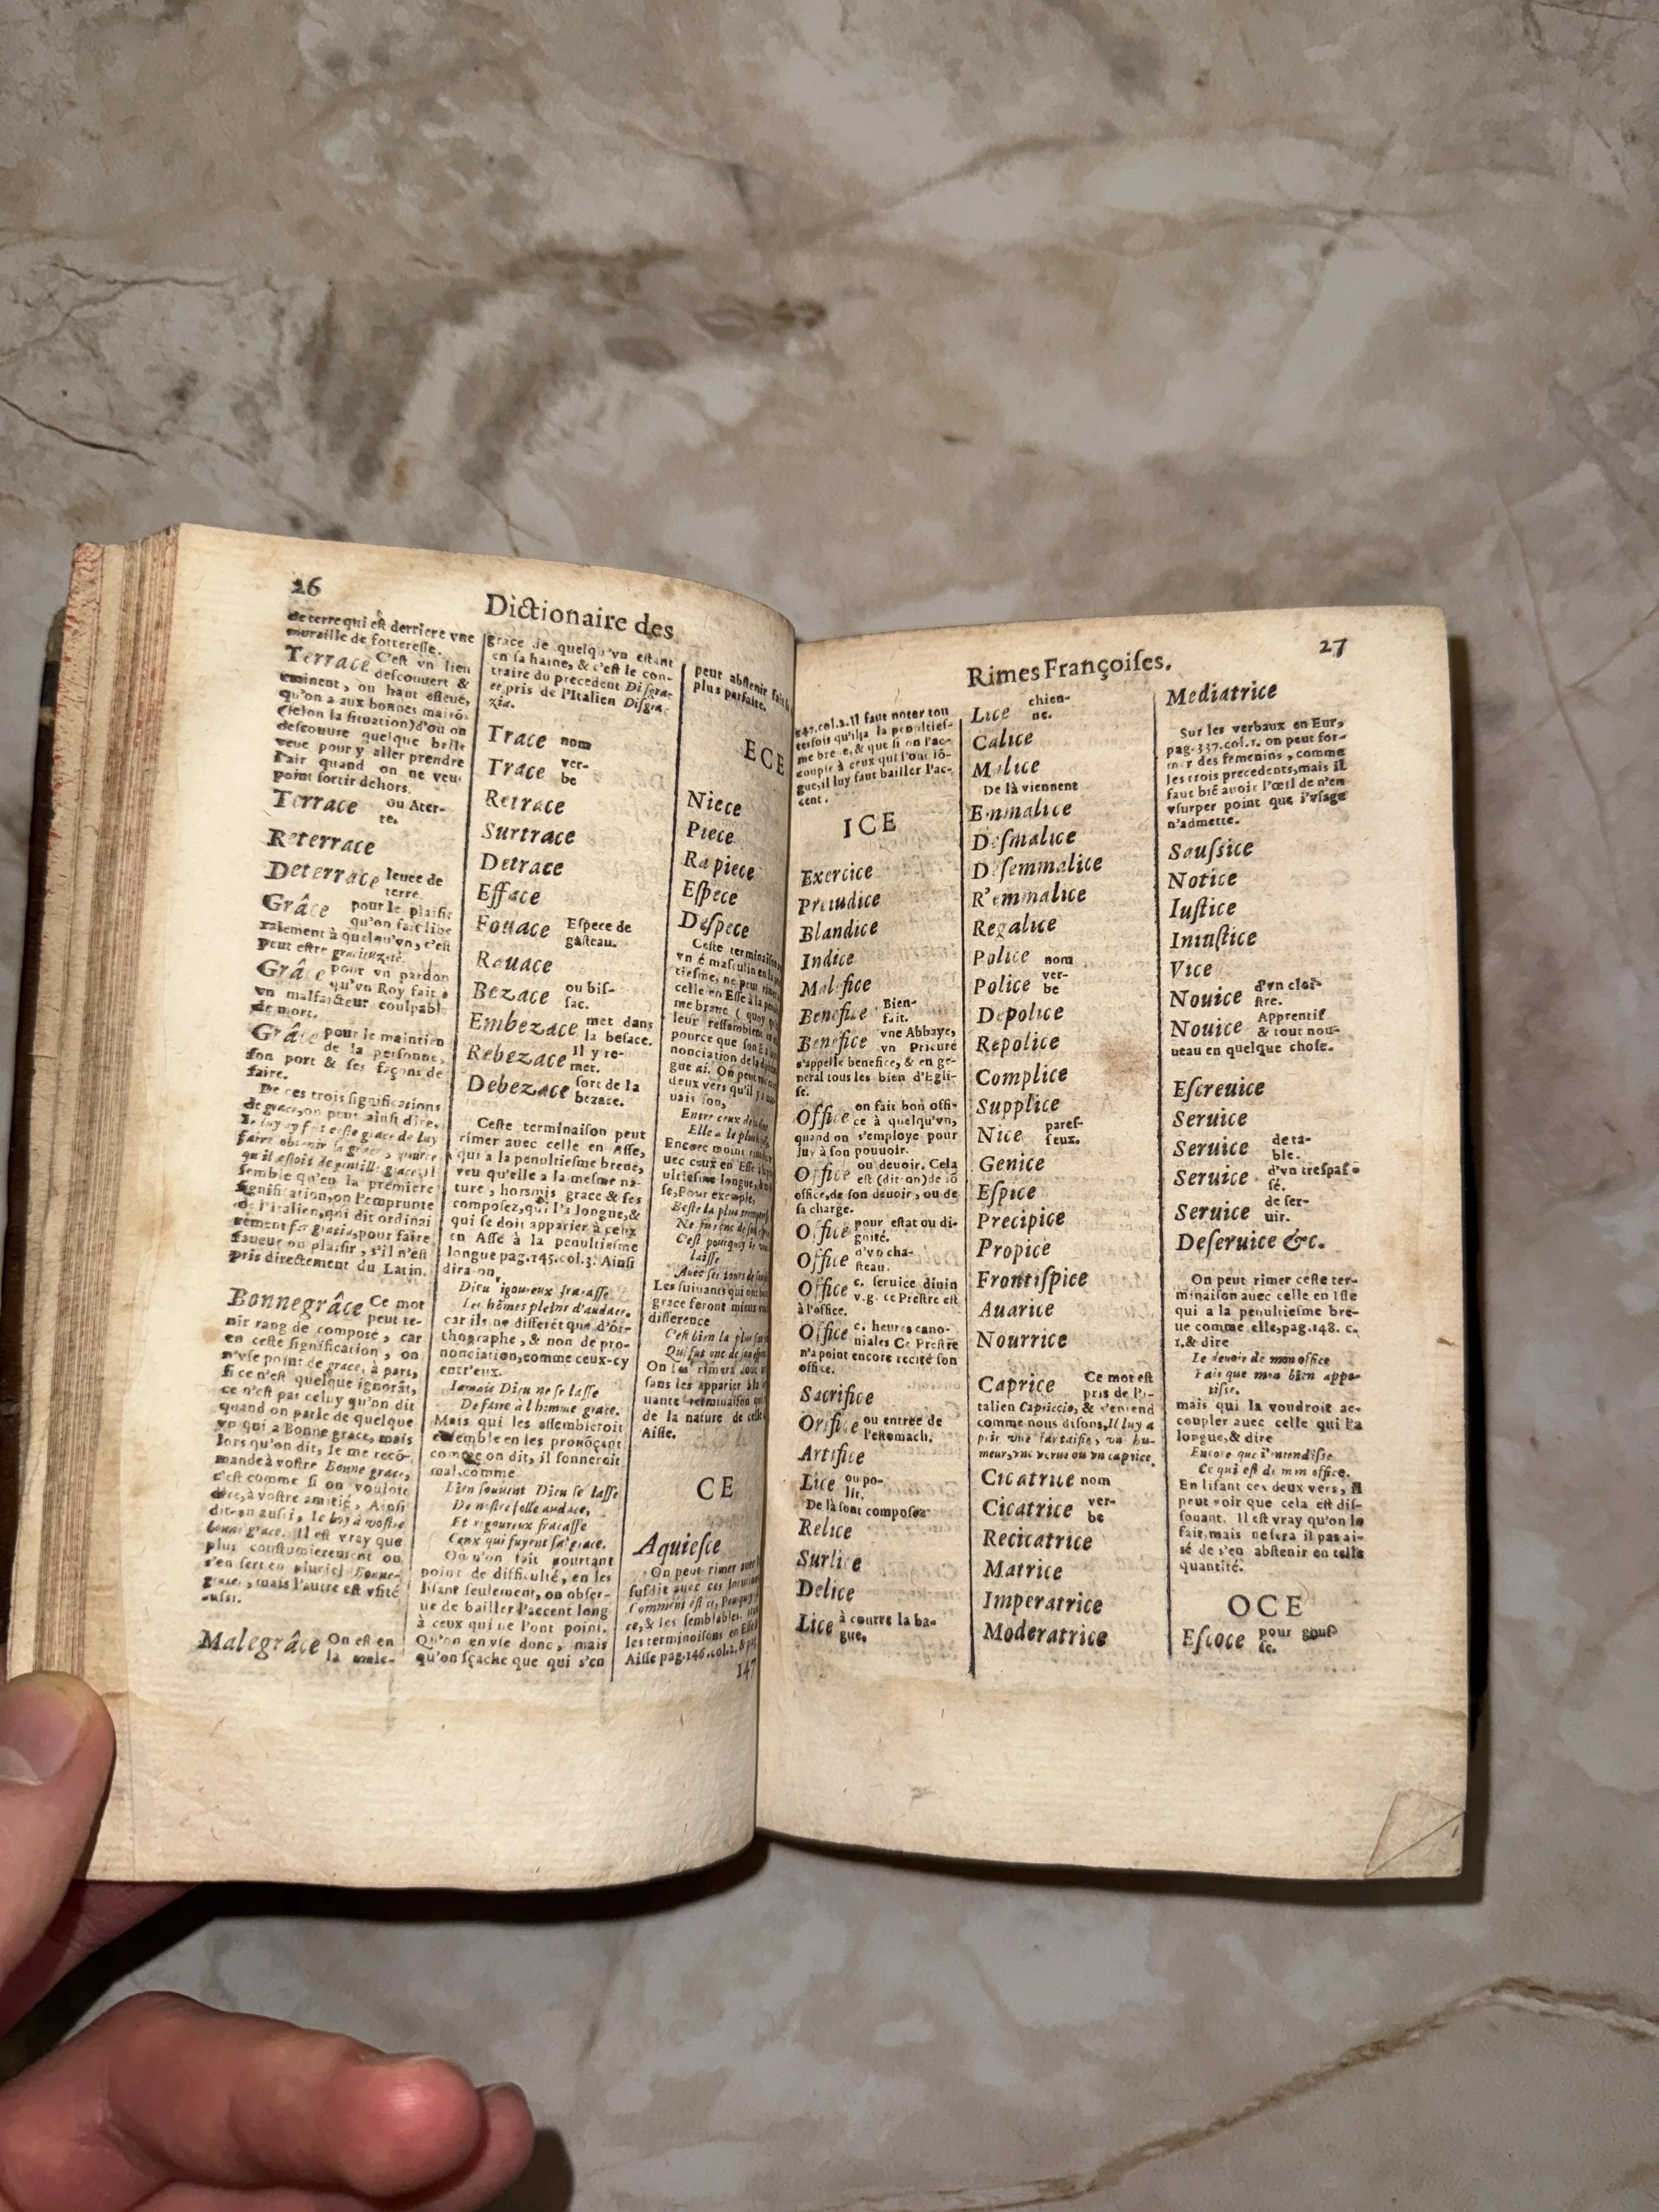 26
Dictionaire des
de terre qui est derriere vne
muraille de forteresse.
Terrace C'est vn lieu
descouuert &
eminent, ou haut esleué,
qu'on a aux bonnes maisõs
(selon la situation) d'où on
descouure quelque belle
veuë pour y aller prendre
l'air quand on ne veut
point sortir dehors.
Terrace ou Ater-
re.
Reterrace
Deterrace leuee de
terre.
Grâce pour le plaisir
qu'on fait libe
ralement à quelqu'vn, c'est
peut estre gracieuzeté.
Grâce pour vn pardon
qu'vn Roy fait à
vn malfaicteur coulpable
de mort.
Grâce pour le maintien
de la personne,
son port & ses façons de
faire.
De ces trois significations
de grace, on peut ainsi dire,
Ie luy ay fait ceste grace de luy
faire obtenir sa grace, pource
qu'il estoit de gentille grace, il
semble qu'en la premiere
signification, on l'emprunte
de l'Italien, qui dit ordinai
rement far gratia, pour faire
faueur ou plaisir, s'il n'est
pris directement du Latin.
Bonnegrâce Ce mot
peut te-
nir rang de composé, car
en ceste signification, on
n'vse point de grace, à part,
si ce n'est quelque ignorãt,
ce n'est pas celuy qu'on dit
quand on parle de quelque
vn qui a Bonne grace, mais
lors qu'on dit, Ie me recõ-
mande à vostre Bonne grace,
c'est comme si on vouloit
dire, à vostre amitié, Ainsi
dit-on aussi, Ie boy à vostre
bonne grace. Il est vray que
plus coustumierement on
s'en sert en pluriel Bonnes-
graces, mais l'autre est vsité
aussi.
Malegrâce On est en
la male-
grace de quelqu'vn estant
en sa haine, & c'est le con-
traire du precedent Disgra-
ce, pris de l'Italien Disgra-
zia.
Trace nom
Trace ver-
be
Retrace
Surtrace
Detrace
Efface
Fouace Espece de
gasteau.
Rauace
Bezace ou bis-
sac.
Embezace met dans
la besace.
Rebezace Il y re-
met.
Debezace sort de la
bezace.
Ceste terminaison peut
rimer auec celle en Asse,
qui a la penultiesme breue,
veu qu'elle a la mesme na-
ture, horsmis grace & ses
composez, qui l'a longue, &
qui se doit apparier à ceux
en Asse à la penultiesme
longue pag. 145. col. 3. Ainsi
dira-on,
Dieu rigoureux fracasse
Les hõmes pleins d'audace.
car ils ne differét que d'or-
thographe, & non de pro-
nonciation, comme ceux-cy
entr'eux.
Iamais Dieu ne se lasse
De faire à l'homme grace.
Mais qui les assembleroit
ensemble en les pronõçant
comme on dit, il sonneroit
mal, comme
Bien souuent Dieu se lasse
De nostre folle audace,
Et rigoureux fracasse
Ceux qui fuyent sa grace.
On n'en fait pourtant
point de difficulté, en les
lisant seulement, on obser-
ue de bailler l'accent long
à ceux qui ne l'ont point.
Qu'on en vse donc, mais
qu'on sçache que qui s'en
peut abstenir fait
plus parfaite.
ECE
Niece
Piece
Rapiece
Espece
Despece
Ceste terminaison
vn é masculin en la
tiesme, ne peut rimer
celle en Esse à la
me breue ( quoy
leur ressemblent
pource que son E
nonciation de la
gue ai. On peut
deux vers qu'il y a
uais son,
Entre ceux de
Elle a la plus
Encore moins
uec ceux en Esse
ultiesme longue,
se, Pour exemple,
Beste la plus
Ne furent de
C'est pourquoy
laisse
Auec ses
Les suiuants qui ont
grace seront mieux
difference
C'est bien la plus
Qui fut one de son
On les rimera donc
sans les apparier à la
uante terminaison qui
de la nature de celle
Aisse.
CE
Aquiesce
On peut rimer
susdit auec ces
Comment est-ce, Pourquoy
ce, & les semblables.
les terminoisons en Esse
Aisse pag. 146. col. 2. & pag.
147
Rimes Françoises.
27
147. col. 2. Il faut noter tou
tesfois qu'il a la penulties-
me breue, & que si on l'ac-
couple à ceux qui l'ont lõ-
gue, il luy faut bailler l'ac-
cent.
ICE
Exercice
Preiudice
Blandice
Indice
Malefice
Benefice Bien-
fait.
Benefice vne Abbaye,
vn Prieuré
s'appelle benefice, & en ge-
neral tous les bien d'Egli-
se.
Office on fait bon offi-
ce à quelqu'vn,
quand on s'employe pour
luy à son pouuoir.
Office ou deuoir. Cela
est (dit-on) de sõ
office, de son deuoir, ou de
sa charge.
Office pour estat ou di-
gnité.
Office d'vn cha-
steau.
Office c. seruice diuin
v.g. ce Prestre est
à l'office.
Office c. heures cano-
niales Ce Prestre
n'a point encore recité son
office.
Sacrifice
Orifice ou entree de
l'estomach.
Artifice
Lice ou po-
lit.
De là sont composez
Relice
Surlice
Delice
Lice à courre la ba-
gue,
Lice chien-
ne.
Calice
Malice
De là viennent
Enmalice
Desmalice
Desemmalice
R'emmalice
Regalice
Police nom
Police ver-
be
Depolice
Repolice
Complice
Supplice
Nice pares-
seux.
Genice
Espice
Precipice
Propice
Frontispice
Auarice
Nourrice
Caprice Ce mot est
pris de l'I-
talien Capriccio, & s'entend
comme nous disons, Il luy a
pris une fantaisie, un hu-
meur, une verue ou un caprice.
Cicatrice nom
Cicatrice ver-
be
Recicatrice
Matrice
Imperatrice
Moderatrice
Mediatrice
Sur les verbaux en Eur,
pag. 337. col. 1. on peut for-
mer des femenins, comme
les trois precedents, mais il
faut bié auoir l'œil de n'en
vsurper point que l'vsage
n'admette.
Saussice
Notice
Iustice
Iniustice
Vice
Nouice d'vn cloi-
stre.
Nouice Apprentif
& tout nou-
ueau en quelque chose.
Escreuice
Seruice
Seruice de ta-
ble.
Seruice d'vn trespas-
sé.
Seruice de ser-
uir.
Deseruice &c.
On peut rimer ceste ter-
minaison auec celle en Isse
qui a la penultiesme bre-
ue comme elle, pag. 148. c.
1. & dire
Le deuoir de mon office
Fait que mon bien appe-
tisse.
mais qui la voudroit ac-
coupler auec celle qui l'a
longue, & dire
Encore que i'entendisse
Ce qui est de mon office.
En lisant ces deux vers, il
peut voir que cela est dis-
sonant. Il est vray qu'on le
fait, mais ne sera il pas ai-
sé de s'en abstenir en telle
quantité.
OCE
Escoce pour gous-
se.